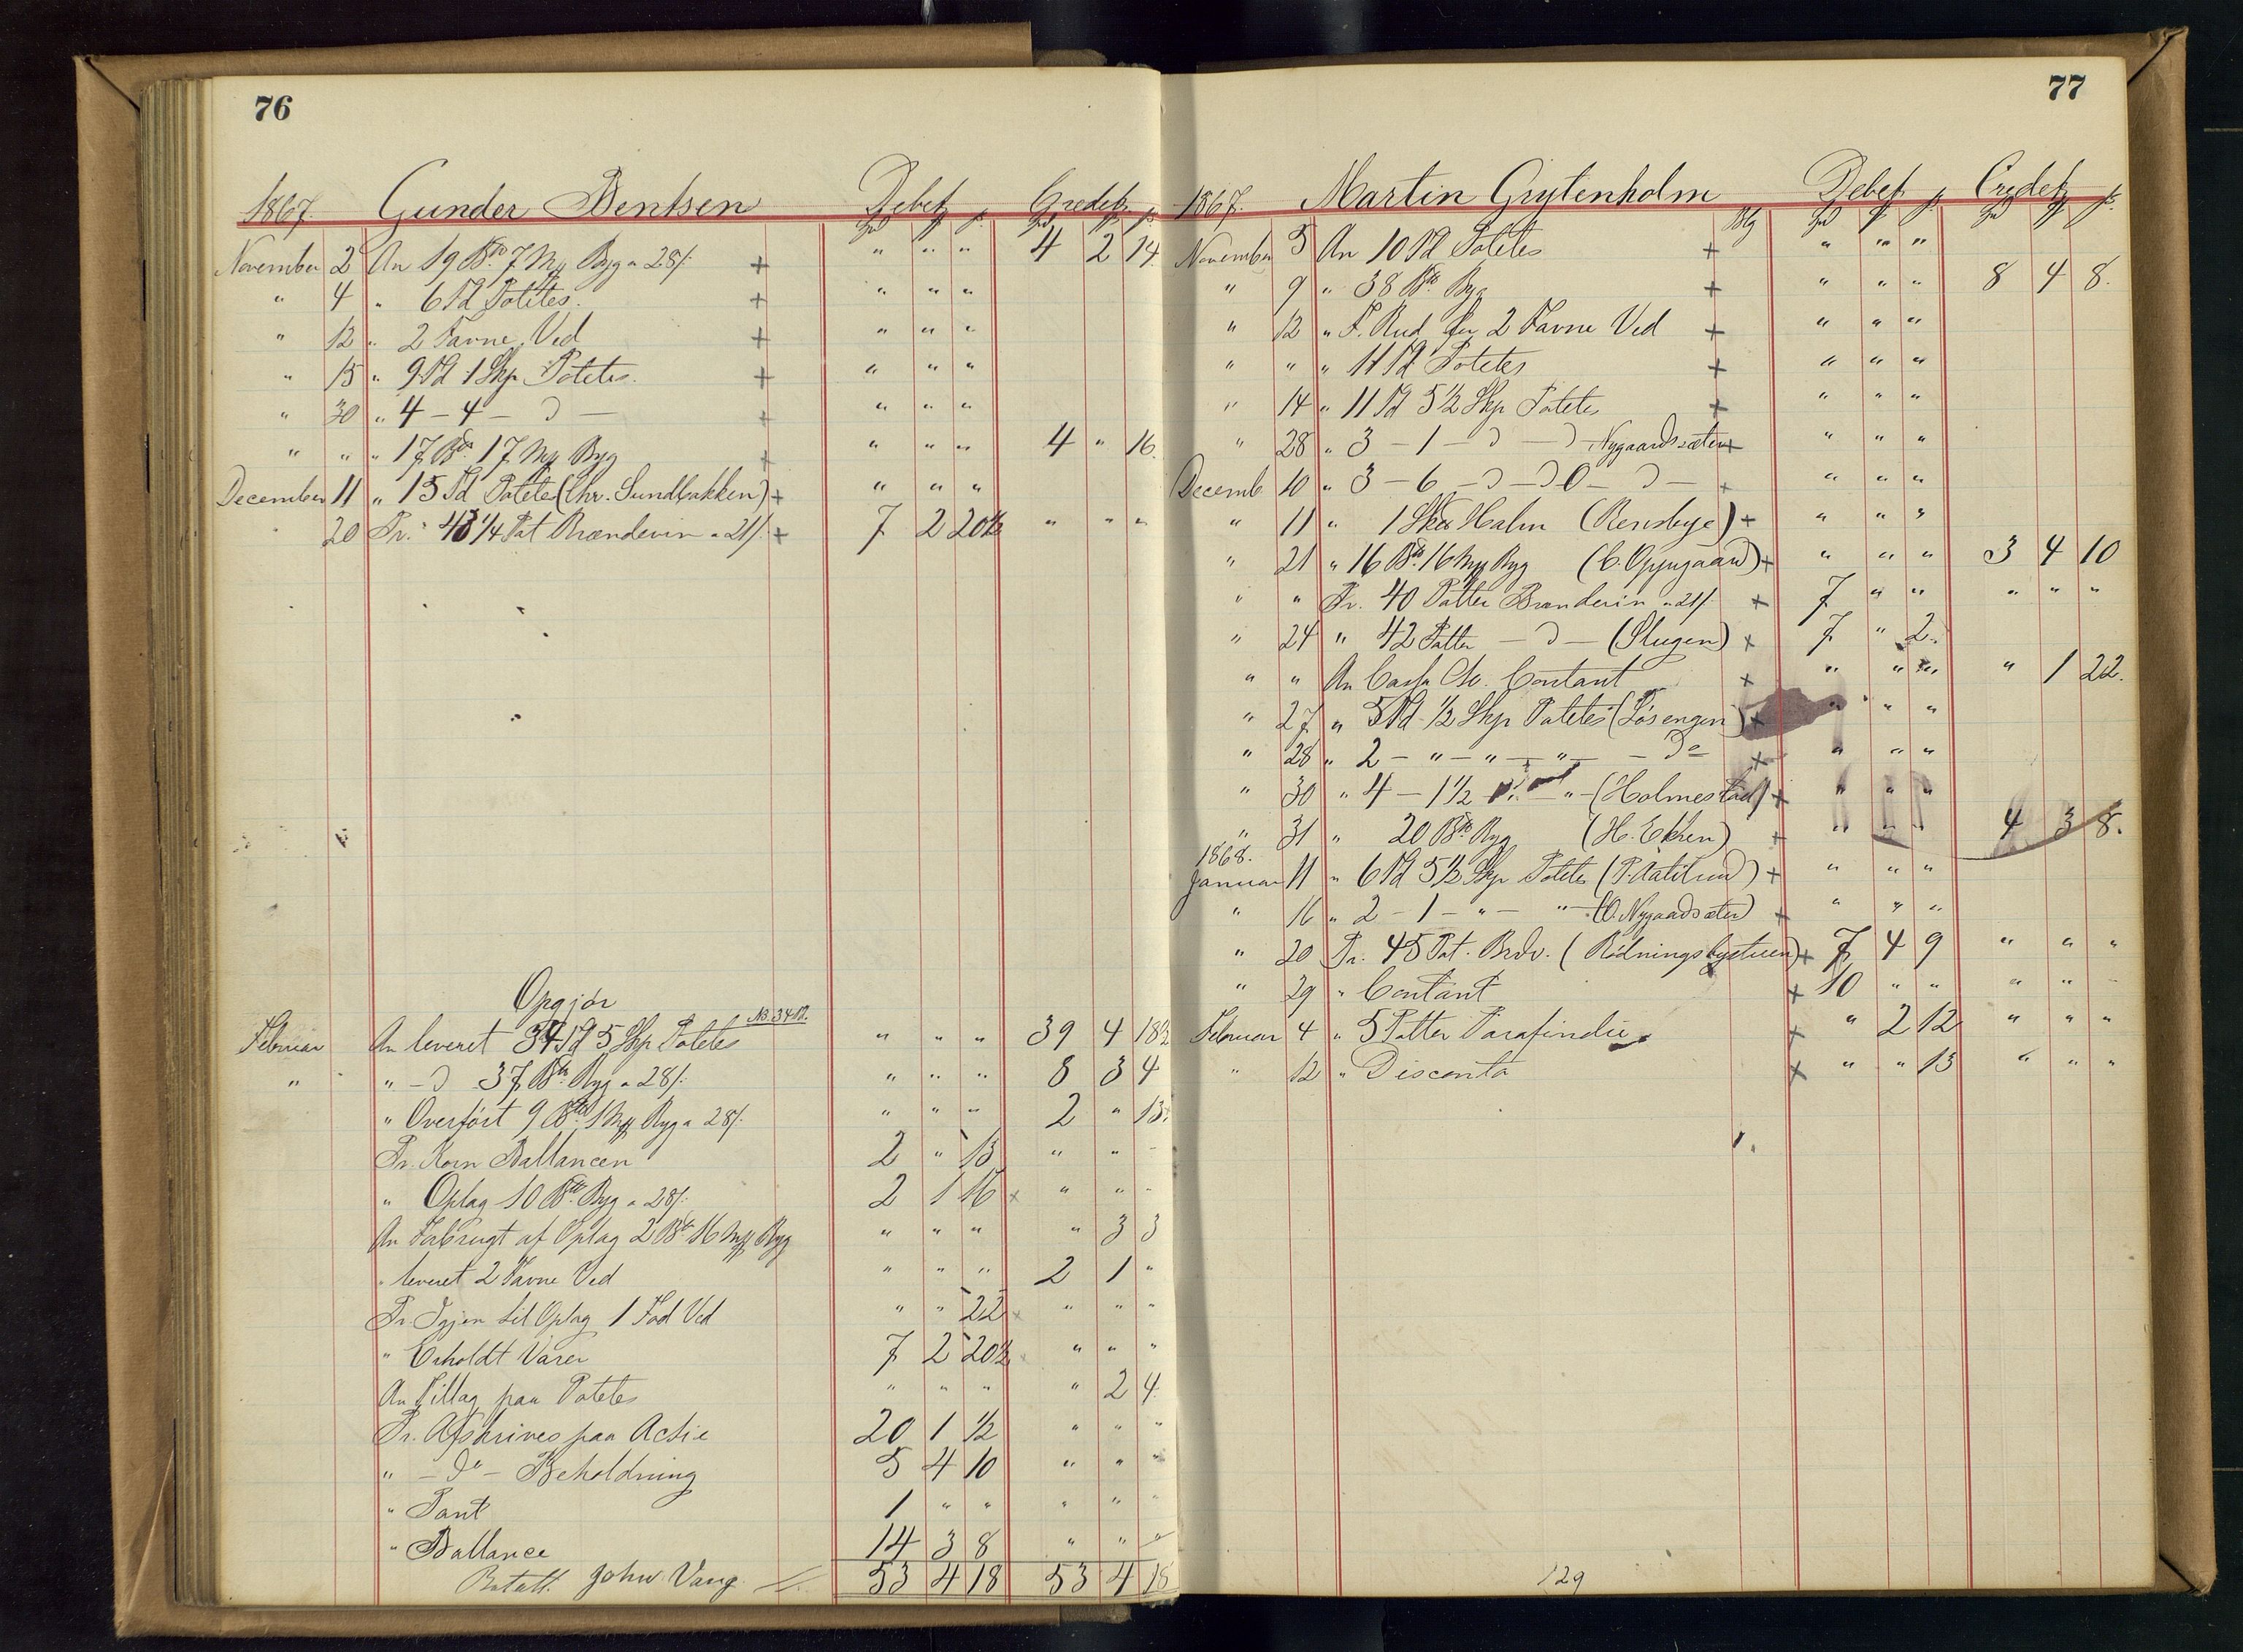 76
1867. Gunder Bentsen Debet Credet
November 2 An 19 Btr. 7 Mk Byg a 28/. + " " " 4 2 14
" 4 " 6 Td Potetes. + " " "
" 12 " 2 Favne Ved + " " "
" 15 " 9 Td 1 Skp Potetes. + " " "
" 30 " 4 - 4 - D - + " " "
" " " 17 Btr. 17 Mk Byg + " " " 4 " 16.
December 11 " 15 Td Potetes (Chr. Sundbakken) + " " "
" 20 Pr. 43 1/4 Pot Brændevin a 21/. + 7 2 20 1/2 " " "
Opgjör
NB. 34 Td.
Februar An leveret 34 Td 5 Skp Potetes " " " 39 4 18 1/2
" " - D 37 Btr. Byg a 28/. " " " 8 3 4
" Overfört 9 Btr. 1 Mk Byg a 28/. " " " 2 " 13.
Pr. Korn Ballancen 2 " 13 " " "
" Oplag 10 Btr. Byg a 28/. 2 1 16 x " " "
An Forbrugt af Oplag 2 Btr. 16 Mk Byg " " " " 3 3
" leveret 2 Favne Ved " " " 2 1 "
Pr. Igjen til Oplag 1 Fod Ved " " 22 x " " "
" Erholdt Varer 7 2 20 1/2 x " " "
An Tillag paa Potetes " " " " 2 4
Pr. Afskrives paa Actie 20 1 1/2 " " "
" - Do - Beholdning 5 4 10 " " "
" Pant 1 " " " " "
" Ballance 14 3 8 " " "
Betalt. John Vang. 53 4 18 53 4 18
77
1867. Martin Grytenholm Debet Credet
November 5 An 10 Td Potetes + " " "
" 9 " 38 Btr. Byg + " " " 8 4 8.
" 12 " F. Rud for 2 Favne Ved + " " "
" " " 11 Td Potetes + " " "
" 14 " 11 Td 5 1/2 Skp Potetes + " " "
" 28 " 3 - 1 - D - D - Nygaardssæteren + " " "
Decemb 10 " 3 - 6 - D - D O - D - + " " "
" 11 " 1 Halm + " " "
" 21 " 16 Btr. 16 Mk Byg (C. Oppegaard) + " " " 3 4 10
" " Pr. 40 Potter Brændevin a 21/. + 7 " " " " "
" 24 " 42 Potter - D - (Skugen) + 7 " 2.
" " An Cassa Cto. Contant + " " " " 1 22.
" 27 " 5 Td 1/2 Skp Potetes (Lösengen) + " " "
" 28 " 2 - " - " - " - - Do + " " "
" 30 " 4 - 1 1/2 " - (Holmestad) + " " "
" 31 " 20 Btr. Byg (H. Ekren) + " " " 4 3 8.
1868.
Januar 11 " 6 Td 5 1/2 Skp Potetes + " " "
" 16 " 2 - 1 - " - " - (O. Nygaardsæter) + " " "
" 20 Pr. 45 Pot. Brdv. (Rödningsbystuen) + 7 4 9 " " "
" 29 " Contant + 10 " " " " "
Februar 4 " 5 Potter Parafinolie + " 2 12 " " "
" 12 " Disconto + " " 13 " " "
129